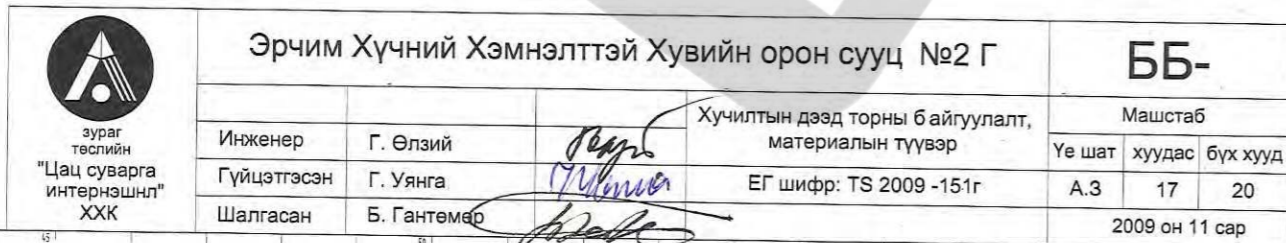 зураг
төслийн
"Цац суварга
интернэшнл"
ХХК
Эрчим Хүчний Хэмнэлттэй Хувийн орон сууц №2 Г
ББ-
Инженер Г. Өлзий
Гүйцэтгэсэн Г. Уянга
Шалгасан Б. Гантөмөр
Хучилтын дээд торны байгуулалт,
материалын түүвэр
ЕГ шифр: TS 2009 -151г
Машстаб
Үе шат хуудас бүх хууд
А.З 17 20
2009 он 11 сар
45 50